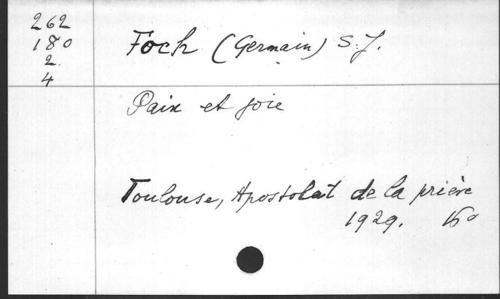 262
180
2.
4
Foch (Germain) S.J.
Paix et joie
Toulouse, Apostolat de la prière
1929. 16°